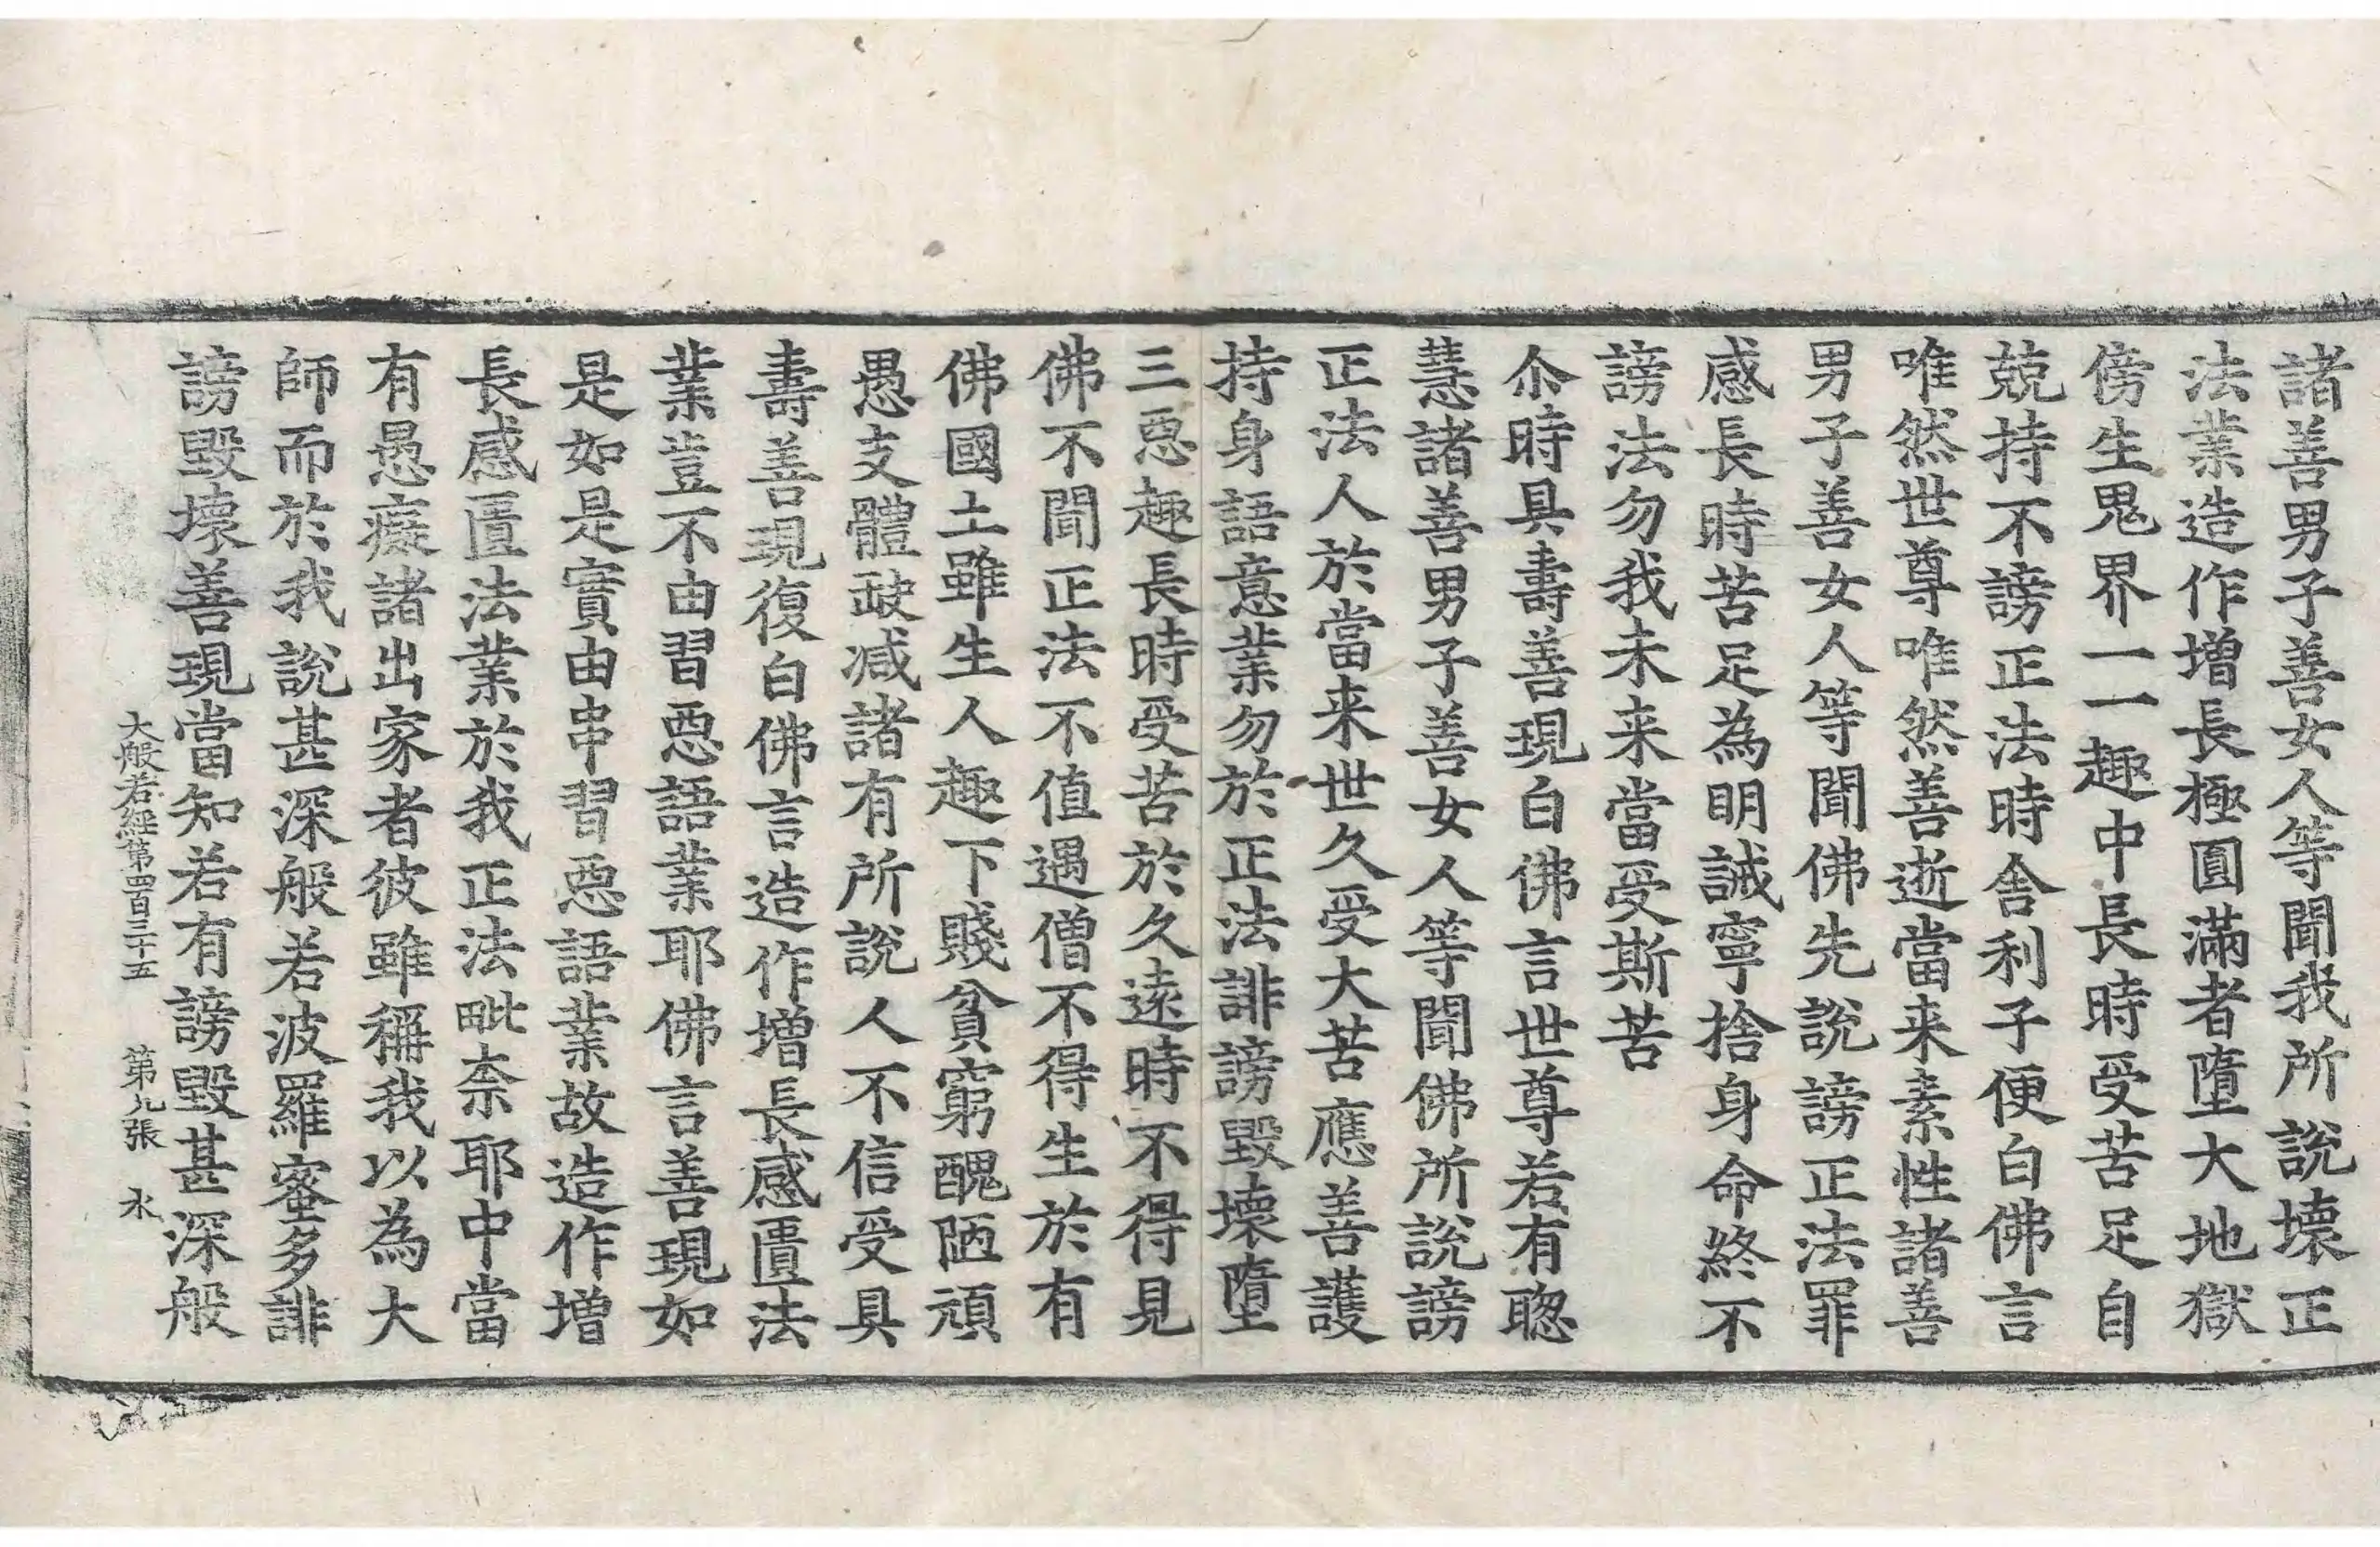 諸善男子善女人等聞我所說壞正
法業造作增長極圓滿者墮大地獄
傍生鬼界一一趣中長時受苦足自
兢持不謗正法時舍利子便白佛言
唯然世尊唯然善逝當来素性諸善
男子善女人等聞佛先說謗正法罪
感長時苦足為明誡寧捨身命終不
謗法勿我未来當受斯苦
尒時具壽善現白佛言世尊若有聦
慧諸善男子善女人等聞佛所說謗
正法人於當来世久受大苦應善護
持身語意業勿於正法誹謗毀壞墮
三惡趣長時受苦於久遠時不得見
佛不聞正法不值遇僧不得生於有
佛國土雖生人趣下賤貧窮醜陋頑
愚支體𤿎减諸有所說人不信受具
壽善現復白佛言造作增長感匱法
業豈不由習惡語業耶佛言善現如
是如是實由串習惡語業故造作增
長感匱法業於我正法毗奈耶中當
有愚癡諸出家者彼雖稱我以為大
師而於我說甚深般若波羅蜜多誹
謗毀壞善現當知若有謗毀甚深般
大般若經第四百三十五　第九張　水